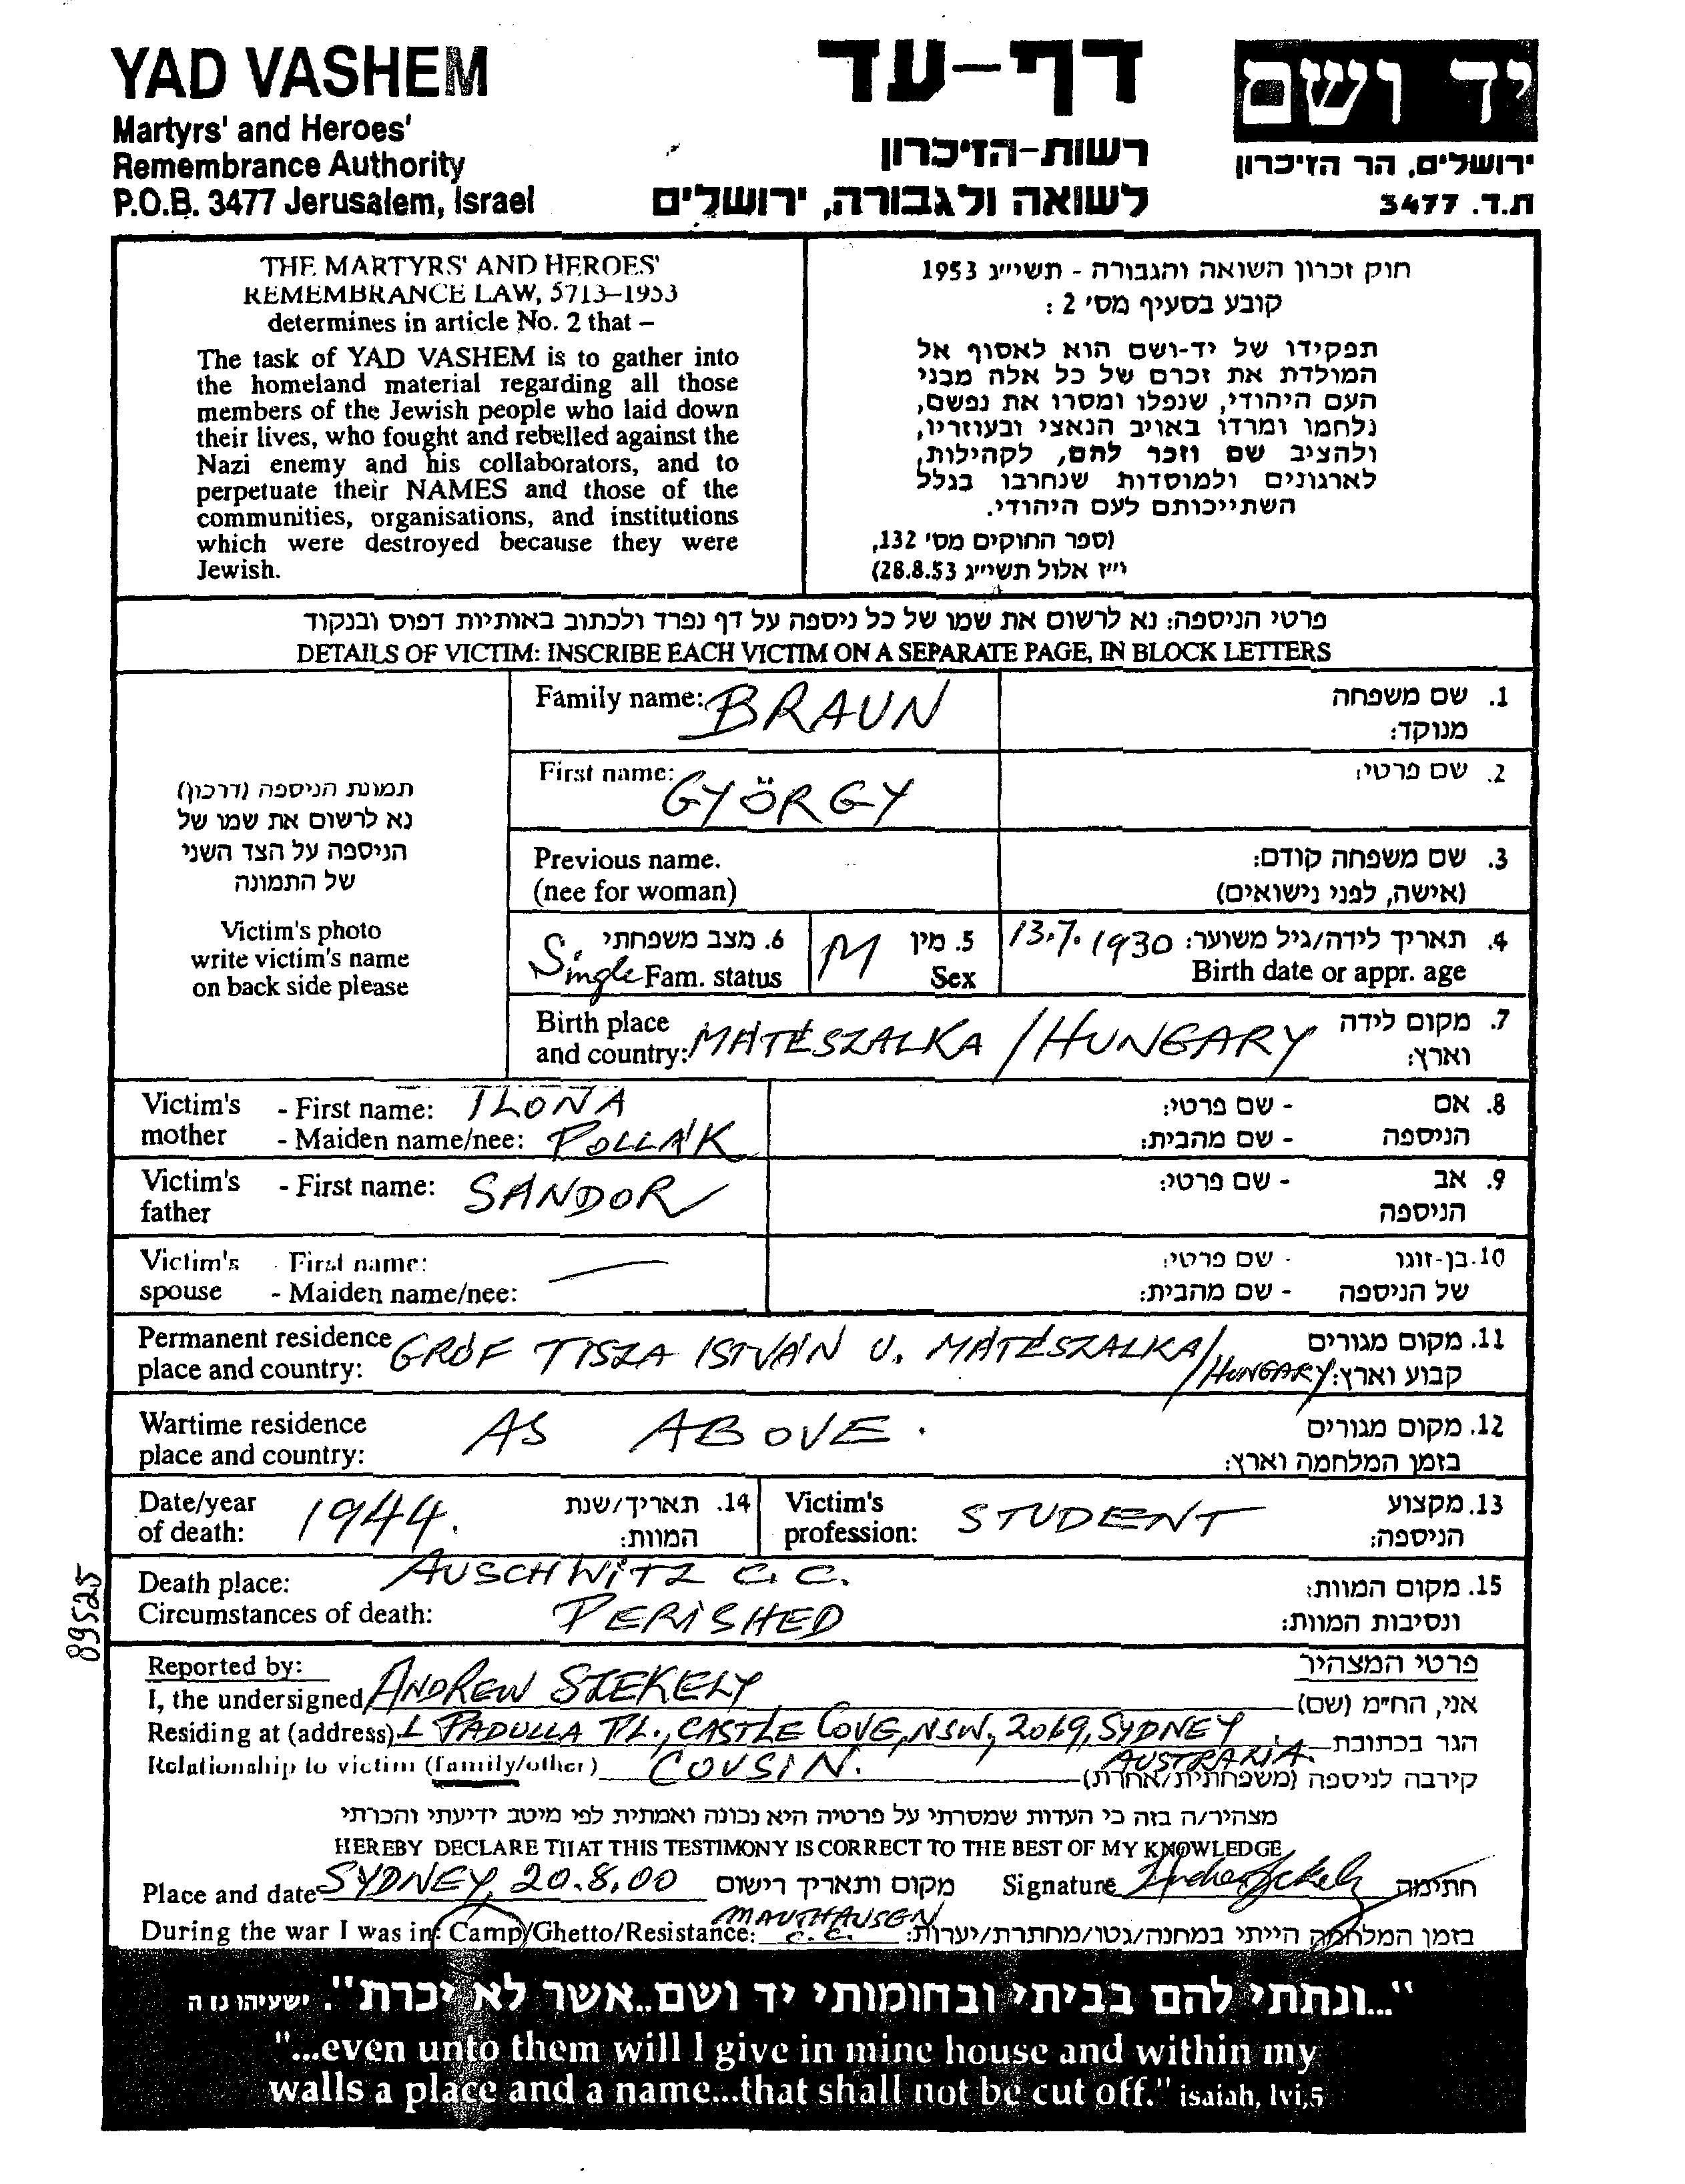 YAD VASHEM
Martyrs' and Heroes'
Remembrance Authority
P.O.B. 3477 Jerusalem, Israel
דף-עד
רשות-הזיכרון
לשואה ולגבורה, ירושלים
יד ושם
ירושלים, הר הזיכרון
ת.ד. 3477
THE MARTYRS' AND HEROES'
REMEMBRANCE LAW, 5713–1953
determines in article No. 2 that –
The task of YAD VASHEM is to gather into
the homeland material regarding all those
members of the Jewish people who laid down
their lives, who fought and rebelled against the
Nazi enemy and his collaborators, and to
perpetuate their NAMES and those of the
communities, organisations, and institutions
which were destroyed because they were
Jewish.
חוק זכרון השואה והגבורה - תשי״ג 1953
קובע בסעיף מס׳ 2 :
תפקידו של יד-ושם הוא לאסוף אל
המולדת את זכרם של כל אלה מבני
העם היהודי, שנפלו ומסרו את נפשם,
נלחמו ומרדו באויב הנאצי ובעוזריו,
ולהציב שם וזכר להם, לקהילות,
לארגונים ולמוסדות שנחרבו בגלל
השתייכותם לעם היהודי.
(ספר החוקים מס׳ 132,
י״ז אלול תשי״ג 28.8.53)
פרטי הניספה: נא לרשום את שמו של כל ניספה על דף נפרד ולכתוב באותיות דפוס ובנקוד
DETAILS OF VICTIM: INSCRIBE EACH VICTIM ON A SEPARATE PAGE, IN BLOCK LETTERS
תמונת הניספה (דרכון)
נא לרשום את שמו של
הניספה על הצד השני
של התמונה
Victim's photo
write victim's name
on back side please
Family name: BRAUN 1. שם משפחה
מנוקד:
First name: GYÖRGY 2. שם פרטי:
Previous name. 3. שם משפחה קודם:
(nee for woman) (אישה, לפני נישואים)
Single 6. מצב משפחתי M 5. מין 13.7.1930 4. תאריך לידה/גיל משוער:
Fam. status Sex Birth date or appr. age
Birth place 7. מקום לידה
and country: MÁTÉSZALKA / HUNGARY וארץ:
Victim's - First name: ILONA - שם פרטי: 8. אם
mother - Maiden name/nee: POLLÁK - שם מהבית: הניספה
Victim's - First name: SÁNDOR - שם פרטי: 9. אב
father הניספה
Victim's - First name: — - שם פרטי: 10. בן-זוגו
spouse - Maiden name/nee: - שם מהבית: של הניספה
Permanent residence GRÓF TISZA ISTVÁN U. MÁTÉSZALKA/ 11. מקום מגורים
place and country: /HUNGARY קבוע וארץ:
Wartime residence AS ABOVE. 12. מקום מגורים
place and country: בזמן המלחמה וארץ:
Date/year 1944. 14. תאריך/שנת Victim's STUDENT 13. מקצוע
of death: המוות: profession: הניספה:
Death place: AUSCHWITZ C.C. 15. מקום המוות:
Circumstances of death: PERISHED ונסיבות המוות:
89525
Reported by: פרטי המצהיר
I, the undersigned ANDREW SZEKELY אני, הח״מ (שם)
Residing at (address) 1 PADULLA PL., CASTLE COVE, NSW, 2069, SYDNEY הגר בכתובת
AUSTRALIA.
Relationship to victim (family/other) COUSIN. קירבה לניספה (משפחתית/אחרת)
מצהיר/ה בזה כי העדות שמסרתי על פרטיה היא נכונה ואמתית לפי מיטב ידיעתי והכרתי
HEREBY DECLARE THAT THIS TESTIMONY IS CORRECT TO THE BEST OF MY KNOWLEDGE
Place and date SYDNEY, 20.8.00 מקום ותאריך רישום Signature חתימה
During the war I was in: Camp/Ghetto/Resistance: MAUTHAUSEN C.C. בזמן המלחמה הייתי במחנה/גטו/מחתרת/יערות:
"...ונתתי להם בביתי ובחומותי יד ושם..אשר לא יכרת". ישעיהו נו ה
"...even unto them will I give in mine house and within my
walls a place and a name...that shall not be cut off." isaiah, lvi,5